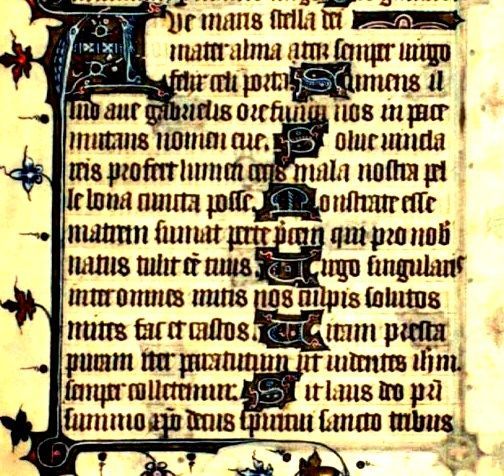 Ave maris stella dei
mater alma atq; semper uirgo
felix celi porta. Sumens il
lud aue gabrielis ore funda nos in pace
mutans nomen eue. Solue uincla
reis profer lumen cecis mala nostra pel
le bona cuncta posce. Monstra te esse
matrem sumat per te p̄cem qui pro nob̄
natus tulit eē tuus. Uirgo singularis
inter omnes mitis nos culpis solutos
mites fac et castos. Uitam presta
puram iter para tutum ut uidentes ih̄m
semper colletemur. Sit laus deo pr̄i
summo xp̄o decus spiritui sancto tribus